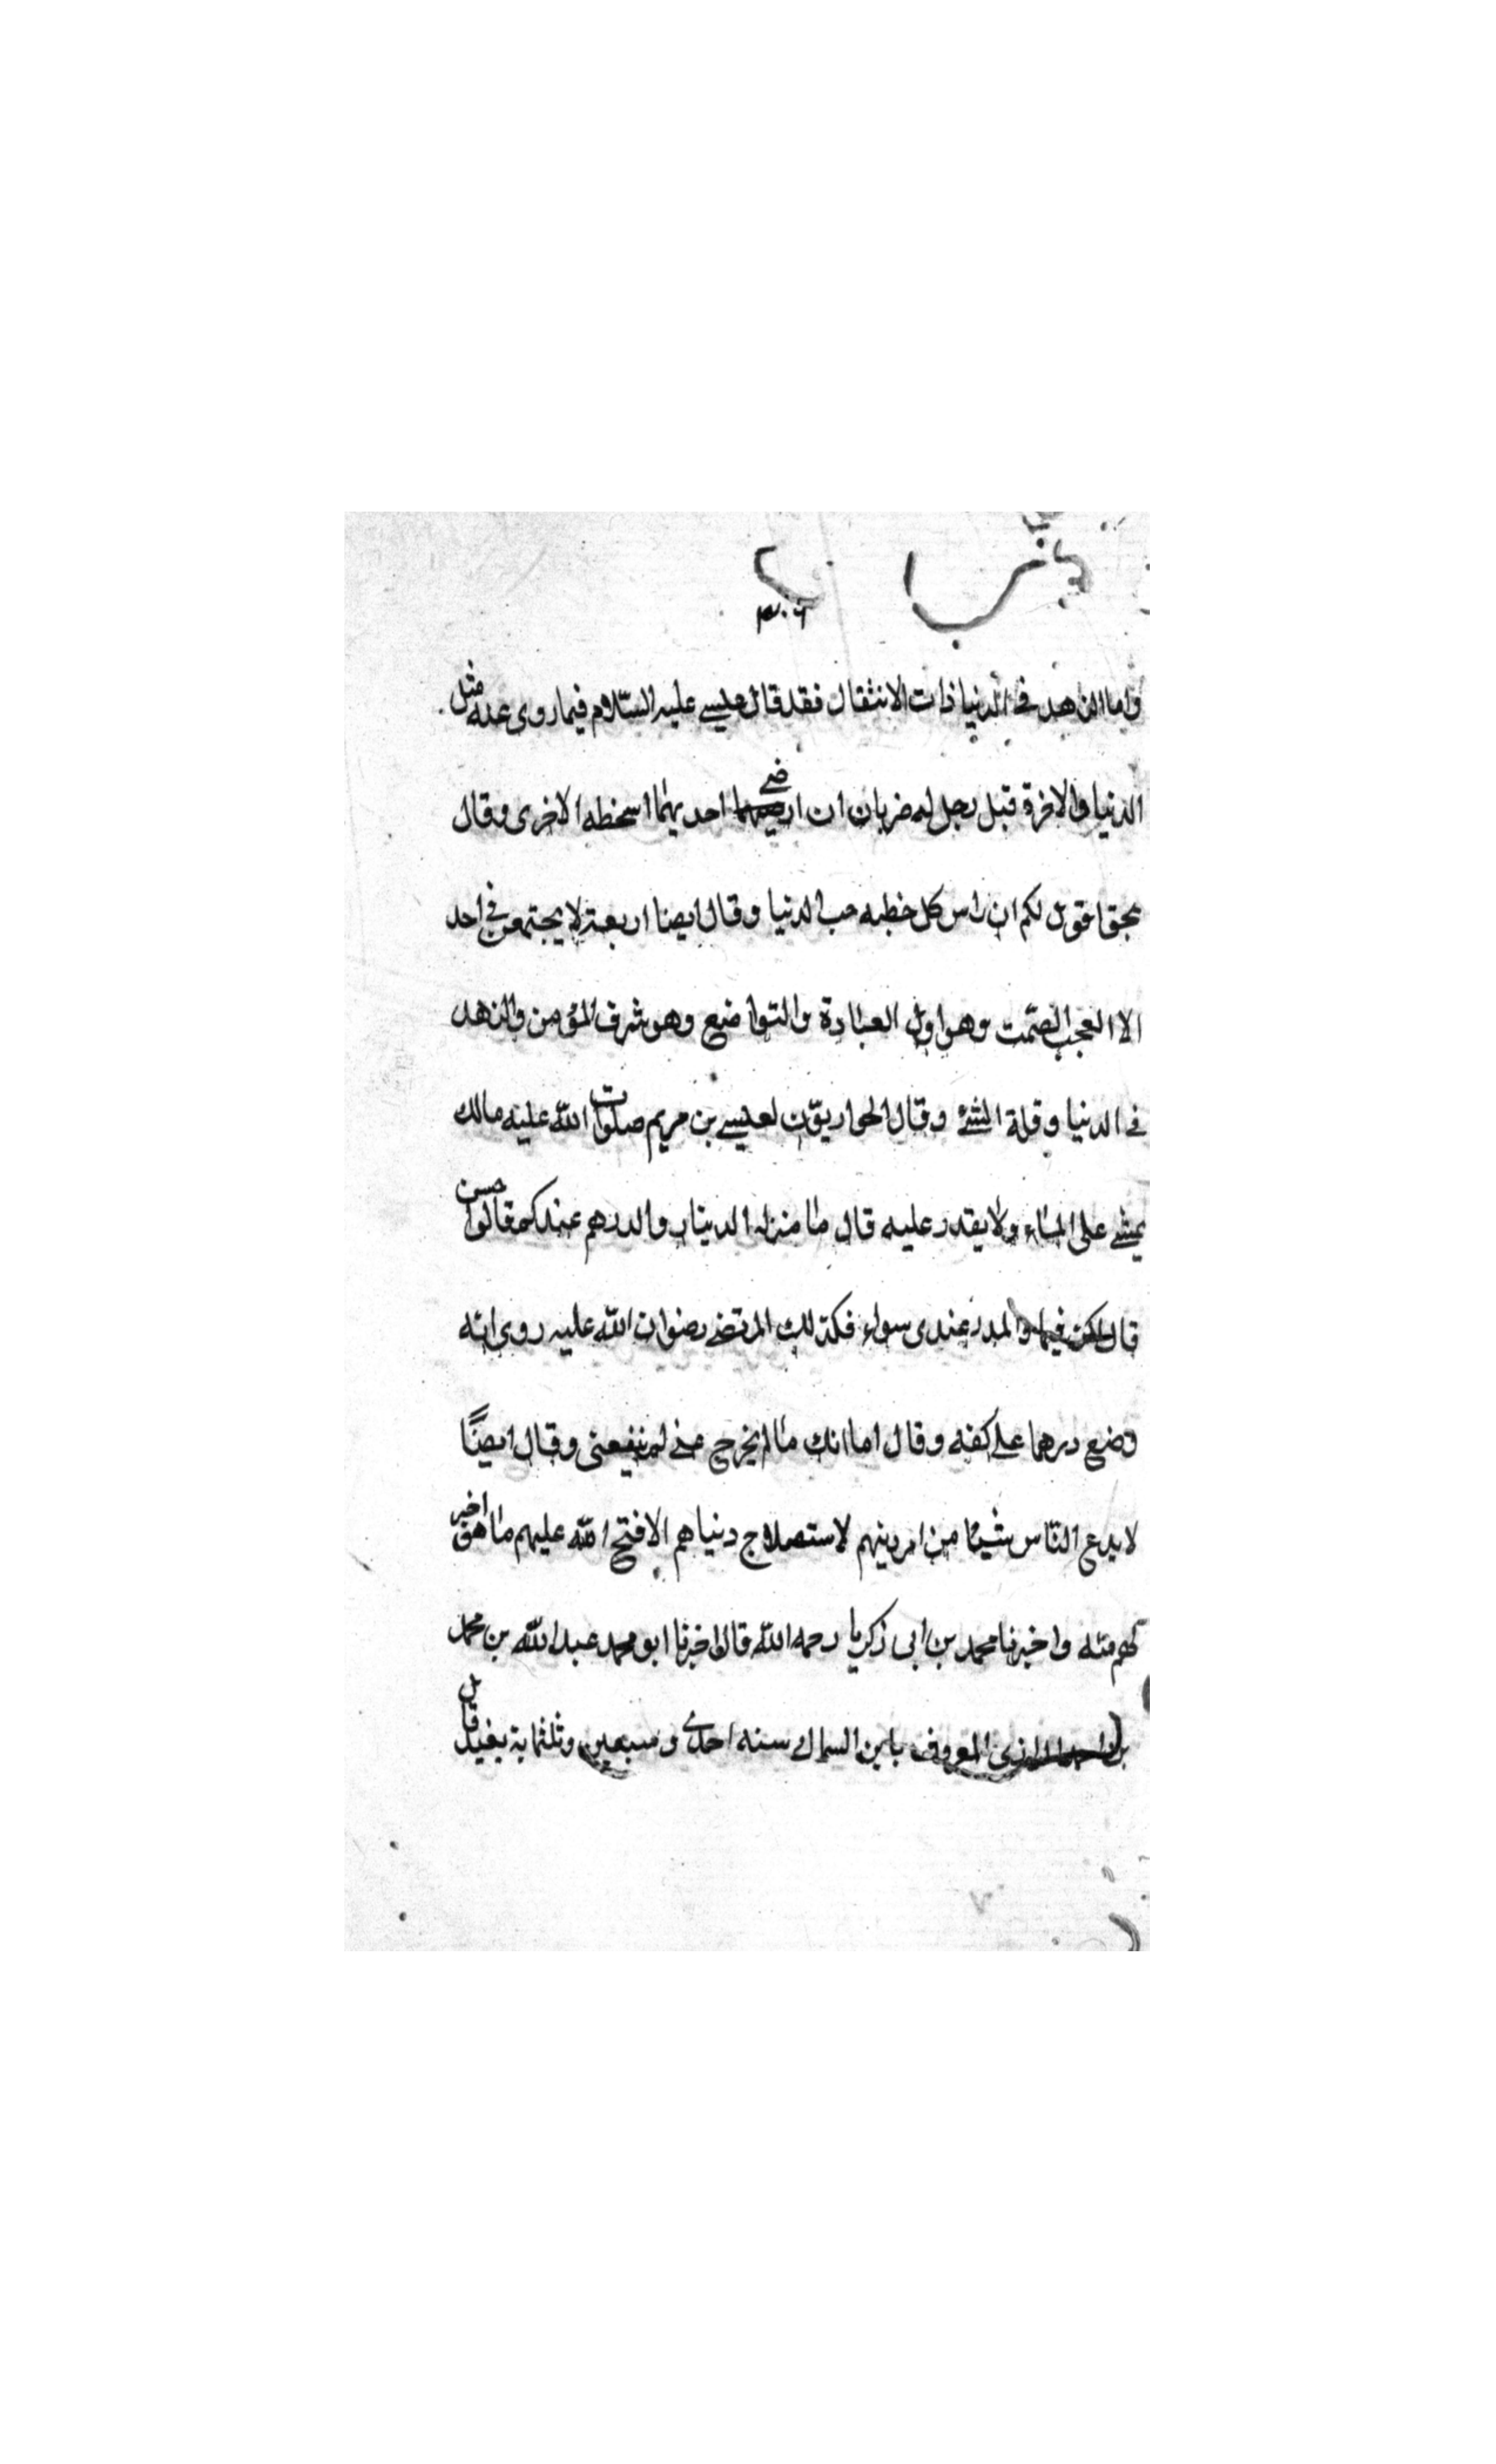 واما الزهد في الدنيا ذات الانثقال فقد قال عيسى عليه السّلام فيما روى عنه مثل
الدنيا والاخرة قبل رجل له ضربان ان ارضى احديهما اسخطه الاخرى وقال
بحق اقول لكم ان راس كل خطيه حب الدنيا وقال ايضا اربعة لا يجتمعن في احد
الا العجب الصّمت وهو اول العبادة والتواضع وهو شرف المؤمن والزهد
في الدنيا وقلة الشئ وقال الحواريّون لعيسى بن مريم صلوات الله عليه مالك
يمشى على الماء ولا يقدر عليه قال ما منزله الدينار والدرهم عندكم قالوا حسن
قال والمدر عندى سواء فكذلك المرتضى رضوان الله عليه روى انه
وضع درهما على كفه وقال اما انك ما لم يخرج عنى لم ينفعنى وقال ايضًا
لا يدع النّاس شيئا من امر دينهم لاستصلاح دنياهم الا فتح الله عليهم ما هو اخير
لهم منه واخبرنا محمد بن ابى زكريا رحمه الله قال اخبرنا ابو محمد عبد الله بن محمد
المعروف باين السماك سنه احدى وسبعين وثلثماية ببغداد قال